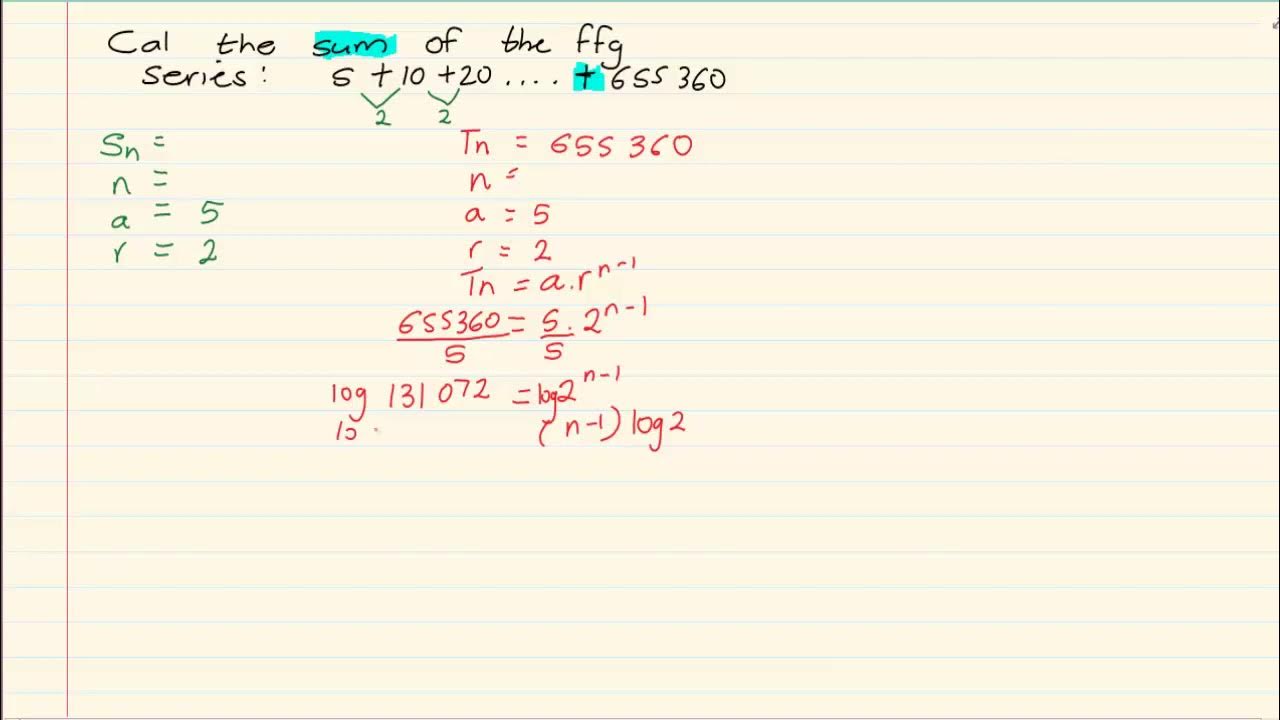 Cal the sum of the ffg
series: 5 + 10 + 20 .... + 655 360
2 2
Sn =
n =
a = 5
r = 2
Tn = 655 360
n =
a = 5
r = 2
Tn = a.r^n-1
655360 = 5 . 2^n-1
5 5
log 131 072 = log2^n-1
(n-1) log2